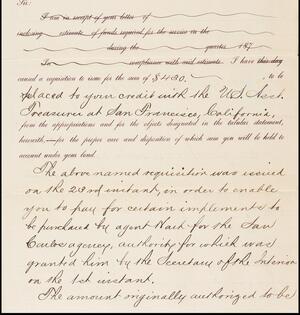 Sir:
I am in receipt of your letter of
inclosing estimate of funds required for the service in the
during the quarter 187
In compliance with said estimate, I have this day
caused a requisition to issue for the sum of $430. , to be
placed to your credit with the U.S. Asst.
Treasurer at San Francisco, California,
from the appropriations and for the objects designated in the tabular statement,
herewith,—for the proper care and disposition of which sum you will be held to
account under your bond.
The above named requisition was issued
on the 23rd instant, in order to enable
you to pay for certain implements to
be purchased by agent Hart for the San
Carlos agency, authority for which was
granted him by the Secretary of the Interior
on the 1st instant.
The amount originally authorized to be